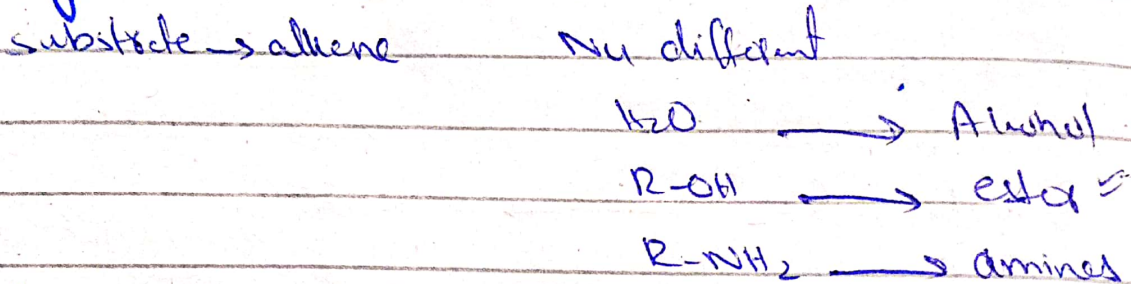 substrate → alkene Nu different
H2O → Alcohol
R-OH → ester
R-NH2 → amines